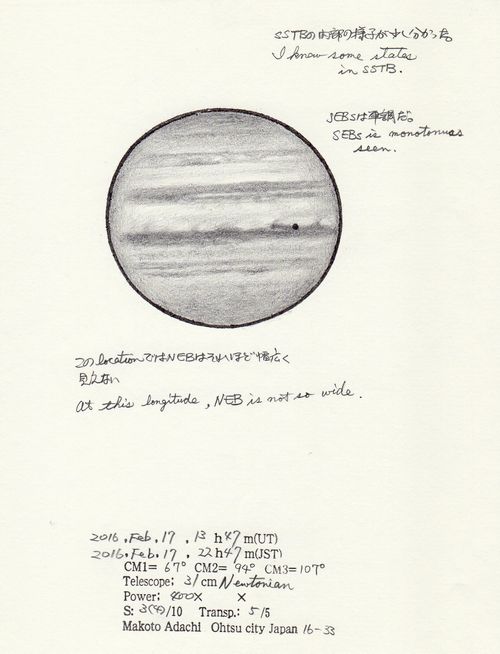 SSTBの内部の様子が少し分かった。
I knew some states
in SSTB.
SEBsは単調だ。
SEBs is monotonuos
seen.
このlocationではNEBはそれほど幅広く
見えない
at this longitude, NEB is not so wide.
2016.Feb.17 . 13 h47m(UT)
2016.Feb.17 , 22h47m(JST)
CM1= 67° CM2= 94° CM3=107°
Telescope: 31cm Newtonian
Power: 400X X
S: 3(4)/10 Transp.: 5/5
Makoto Adachi Ohtsu city Japan 16-33